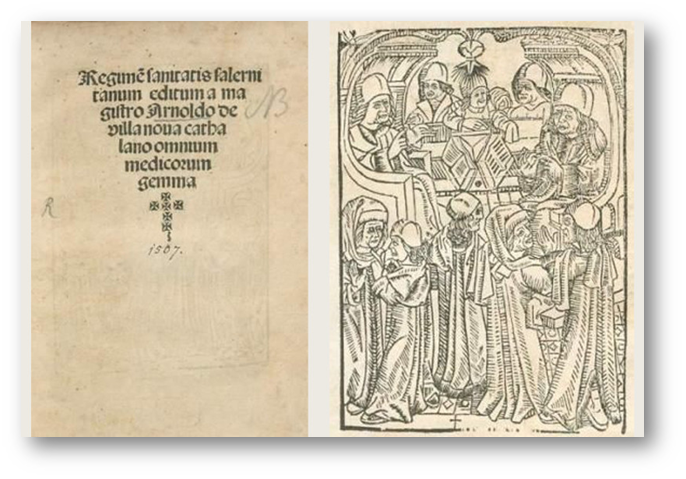 Regimẽ sanitatis salerni
tanum editum a ma
gistro Arnoldo de
villa noua catha
lano omnium
medicorum
gemma
NB
R
1507.